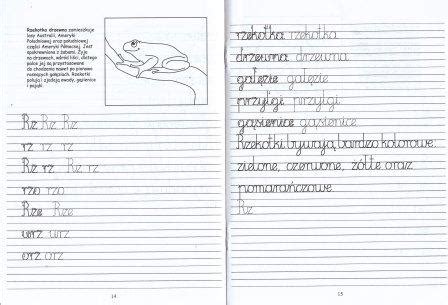 Rzekotka drzewna zamieszkuje
lasy Australii, Ameryki
Południowej oraz południowej
części Ameryki Północnej. Jest
spokrewniona z żabami. Żyje
na drzewach, wśród liści, dlatego
palce jej są przystosowane
do chodzenia nawet po pionowo
rosnących gałęziach. Rzekotki
polują i zjadają owady, gąsienice
i pająki.
Rz Rz Rz
rz rz rz
Rz rz Rz rz
rzo rzo
Rze Rze
urz urz
orz orz
14
rzekotka rzekotka
drzewna drzewna
gałęzie gałęzie
przylgi przylgi
gąsienice gąsienice
Rzekotki bywają bardzo kolorowe:
zielone, czerwone, żółte oraz
pomarańczowe.
Rz
15